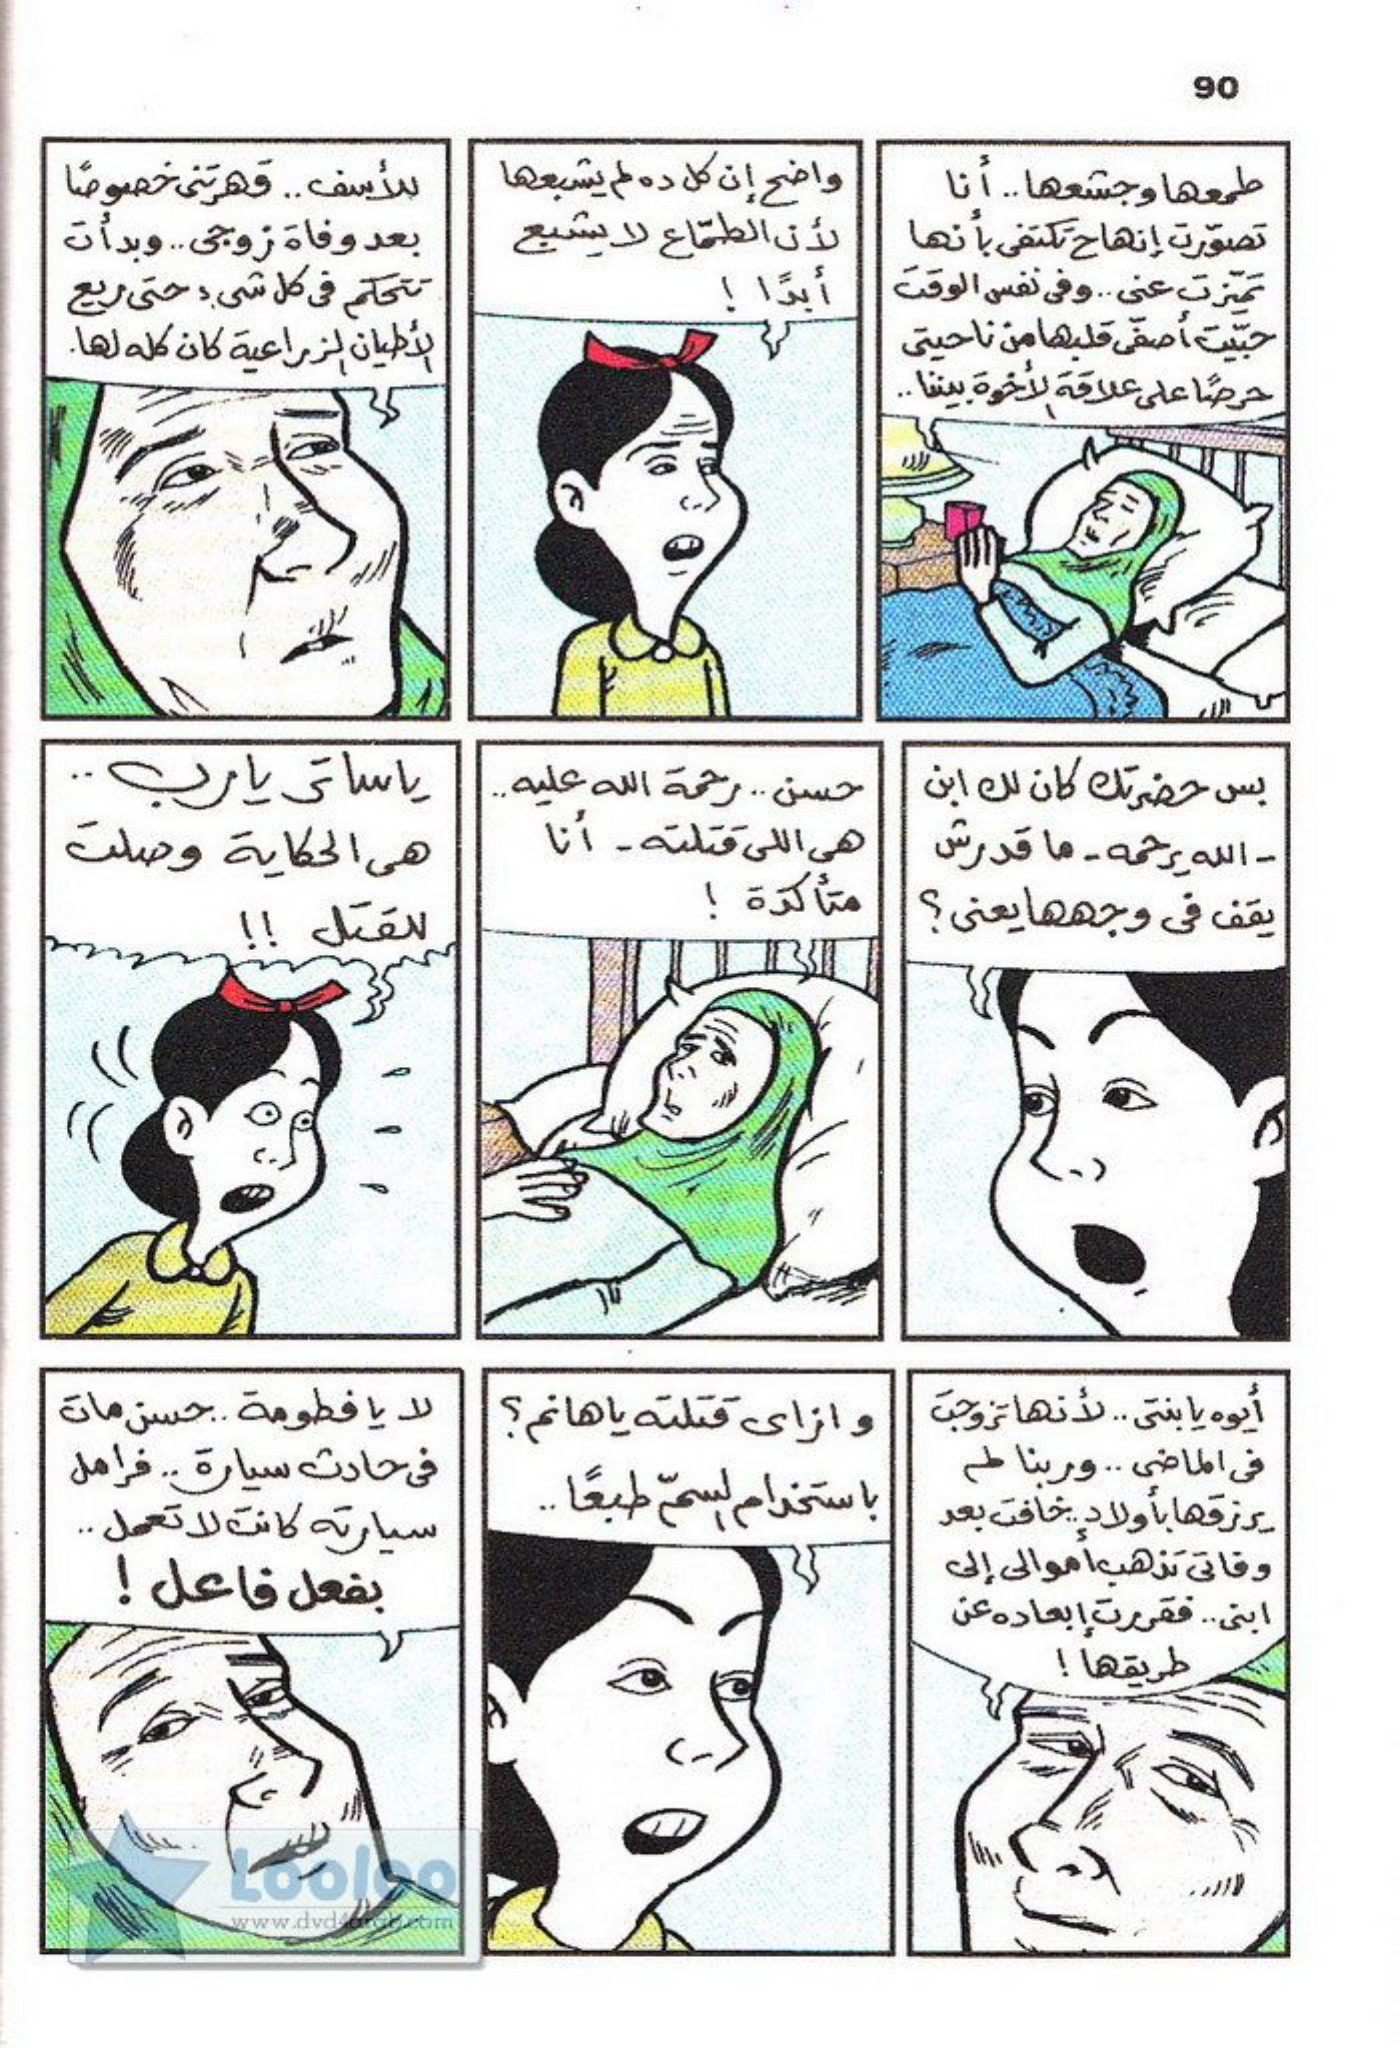 90
طمعها وجشعها.. أنا
تصوّرت إنها ح تكتفى بأنها
تميّزت عنى.. وفى نفس الوقت
حبّيت أصفّى قلبها من ناحيتى
حرصًا على علاقة الأخوة بيننا..
واضح إن كل ده لم يشبعها
لأن الطمّاع لا يشبع
أبدًا !
للأسف.. قهرتنى خصوصًا
بعد وفاة زوجى.. وبدأت
تتحكم فى كل شىء؛ حتى ريع
الأطيان الزراعية كان كله لها.
بس حضرتك كان لك ابن
- الله يرحمه - ما قدرش
يقف فى وجهها يعنى؟
حسن.. رحمة الله عليه..
هى اللى قتلته - أنا
متأكدة !
ياساتر يارب..
هى الحكاية وصلت
للقتل !!
أيوه يا بنتى.. لأنها تزوجت
فى الماضى.. وربنا لم
يرزقها بأولاد.. خافت بعد
وفاتى تذهب أموالى إلى
ابنى.. فقررت إبعاده عن
طريقها !
وازاى قتلته ياهانم؟
باستخدام السمّ طبعًا..
لا يا فطومة.. حسن مات
فى حادث سيارة.. فرامل
سيارته كانت لا تعمل..
بفعل فاعل !
Looloo
www.dvd4arab.com